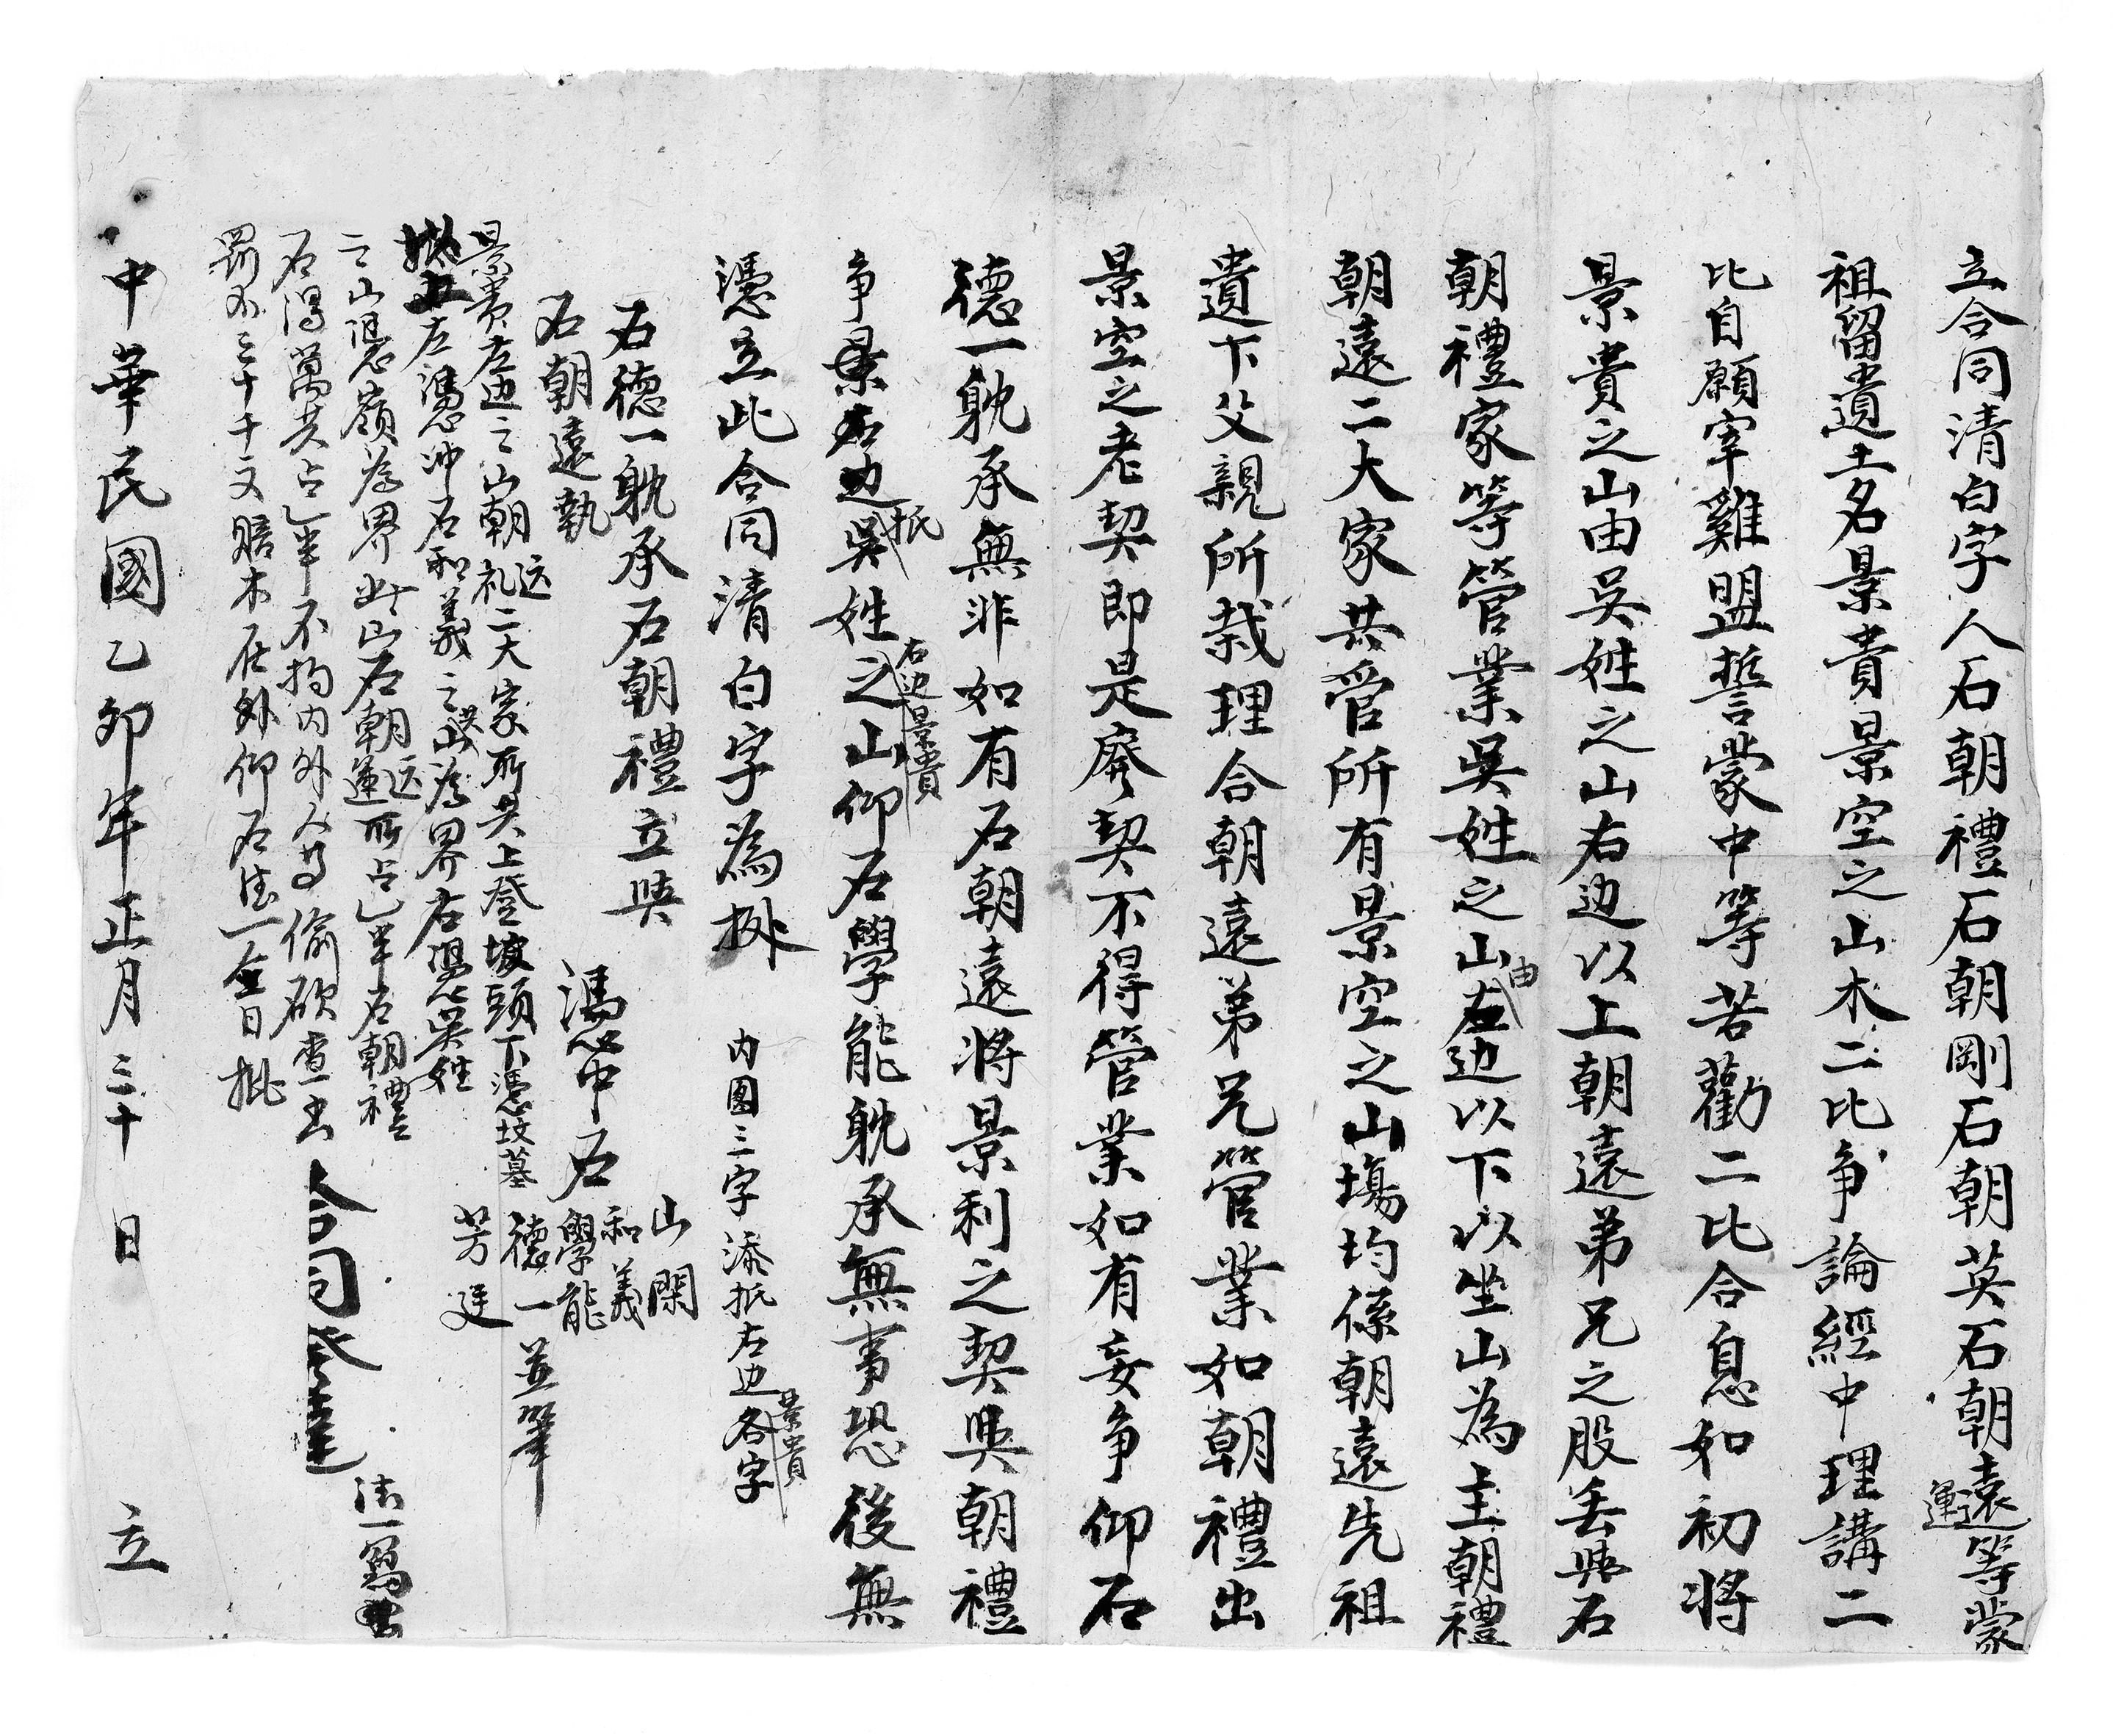 立合同清白字人石朝禮石朝剛石朝英石朝遠運等蒙
祖留遺土名景貴景空之山木二比争論經中理講二
比自願宰雞盟誓蒙中等苦勸二比合息如初將
景貴之山由吳姓之山右边以上朝遠弟兄之股丢與石
朝禮家等管業吳姓之山由左边以下以坐山為主朝禮
朝遠二大家共管所有景空之山塲均係朝遠先祖
遺下父親所栽理合朝遠弟兄管業如朝禮出
景空之老契即是廢契不得管業如有妄争仰石
德一躭承無非如有石朝遠將景利之契與朝禮
争景右边抵吳姓之右边景貴山仰石學能躭承無事恐後無
憑立此合同清白字為挀
内圈三字添抵右边景貴各字
石德一躭承石朝禮立與
石朝遠執
馮中石
山閑
和義
學能
德一並筆
芳廷
景貴左边之山朝远礼二大家所共上登坡頭下憑坟墓
左憑冲石和義之山為界右憑吳姓
之山憑嶺為界此山石朝远運所占乙半石朝禮
石得萬共占乙半不拘内外人等偷砍查出
罰不三十千文賠木在外仰石德一仝日批
合同發達
德一寫
中華民國乙卯年正月三十日立